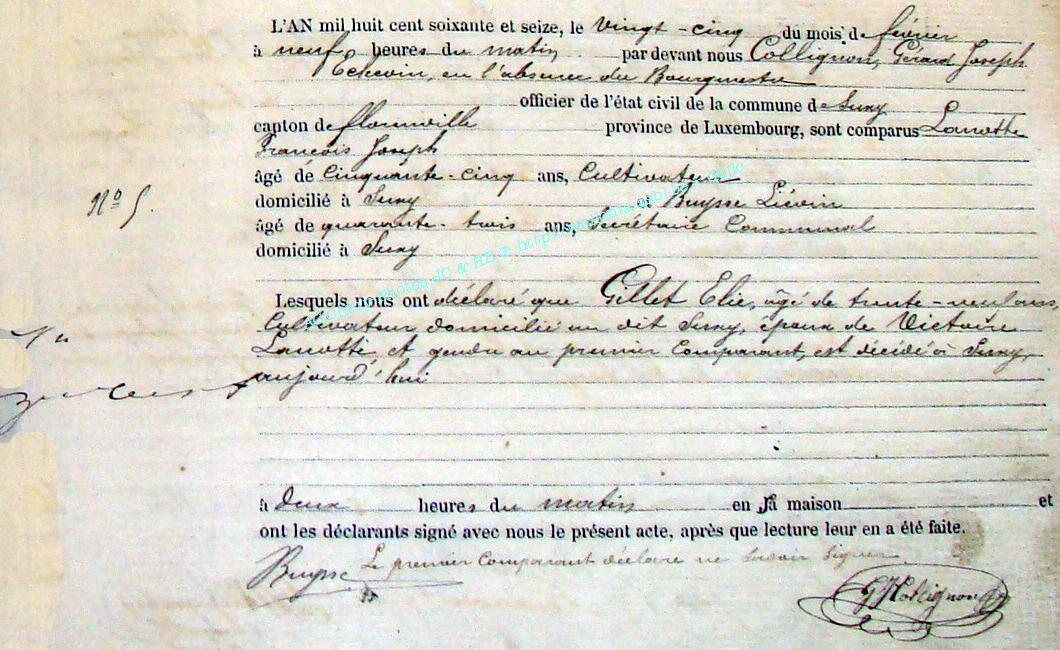 L'AN mil huit cent soixante et seize, le vingt-cinq du mois de février
à neuf heures du matin par devant nous Collignon, Gérard Joseph
Echevin, en l'absence du Bourgmestre
officier de l'état civil de la commune de Suxy
canton de florenville province de Luxembourg, sont comparus Lamotte
François Joseph
âgé de Cinquante-cinq ans, Cultivateur
domicilié à Suxy et Buysse Liévin
N° 5.
âgé de quarante-trois ans, Secrétaire Communal
domicilié à Suxy
Lesquels nous ont déclaré que Gillet Elie, âgé de trente-neuf ans
Cultivateur domicilié au dit Suxy, époux de Victoire
Lamotte et gendre au premier Comparant, est décédé à Suxy,
aujourd'hui
à deux heures du matin en sa maison et
ont les déclarants signé avec nous le présent acte, après que lecture leur en a été faite.
Le premier Comparant déclare ne savoir signer
Buysse
G J Collignon